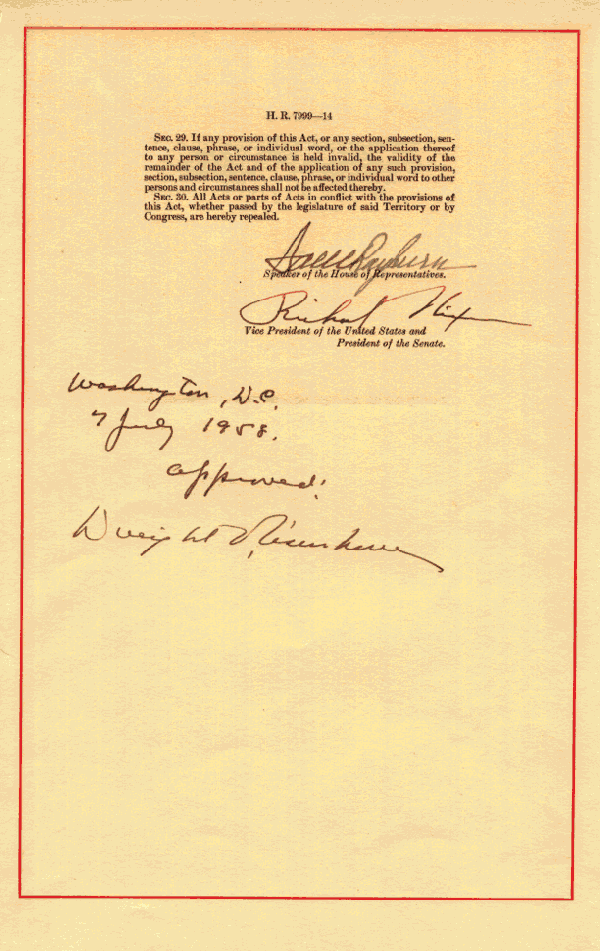 H. R. 7999—14
SEC. 29. If any provision of this Act, or any section, subsection, sen-
tence, clause, phrase, or individual word, or the application thereof
to any person or circumstance is held invalid, the validity of the
remainder of the Act and of the application of any such provision,
section, subsection, sentence, clause, phrase, or individual word to other
persons and circumstances shall not be affected thereby.
SEC. 30. All Acts or parts of Acts in conflict with the provisions of
this Act, whether passed by the legislature of said Territory or by
Congress, are hereby repealed.
Sam Rayburn
Speaker of the House of Representatives.
Richard Nixon
Vice President of the United States and
President of the Senate.
Washington, D.C.
7 July 1958.
approved:
Dwight D. Eisenhower